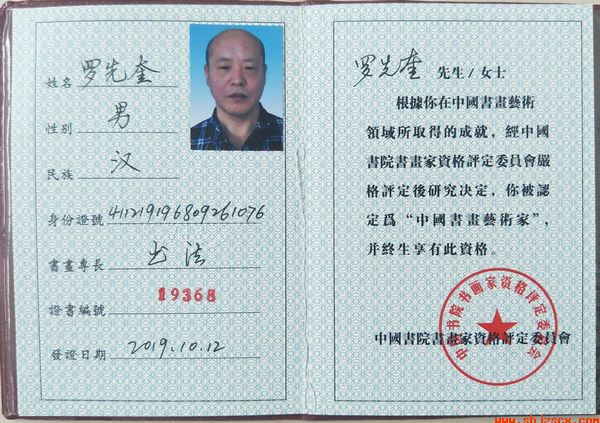 姓名 罗先奎
性别 男
民族 汉
身份證號 411219196809261076
書畫專長 书法
證書編號 19368
發證日期 2019.10.12
罗先奎 先生/女士
根據你在中國書畫藝術
領域所取得的成就，經中國
書院書畫家資格評定委員會嚴
格評定後研究決定，你被認
定爲“中國書畫藝術家”，
并終生享有此資格。
中國書院書畫家資格評定委員會
中国书院书画家资格评定委员会
www.sbjzscx.com